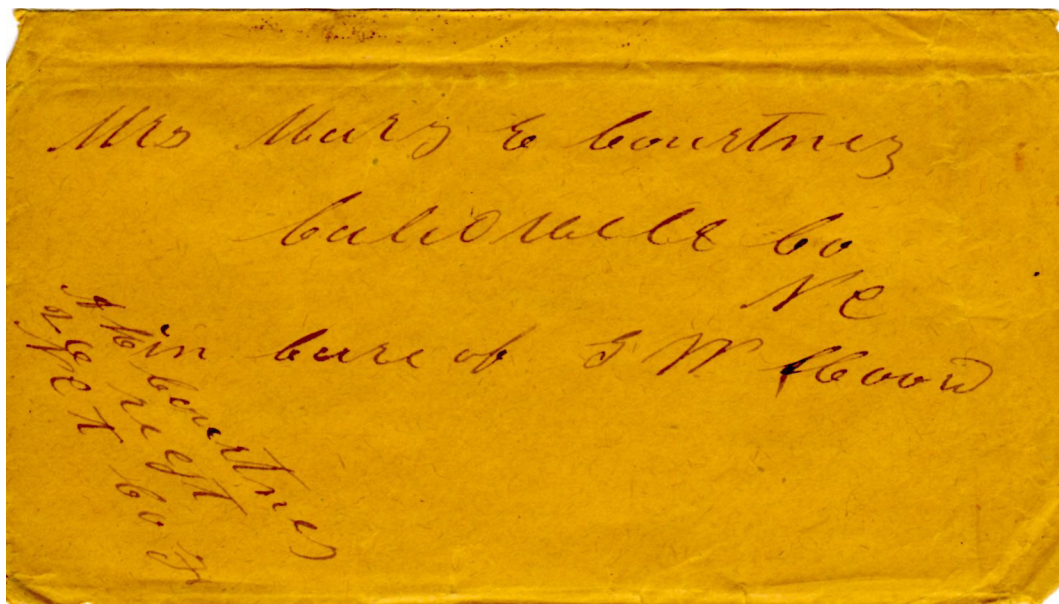 Mrs Mary E Courtney
Caldwell Co
N C
in care of G W Hoover
A M Courtney
26 regt
N C T Co F